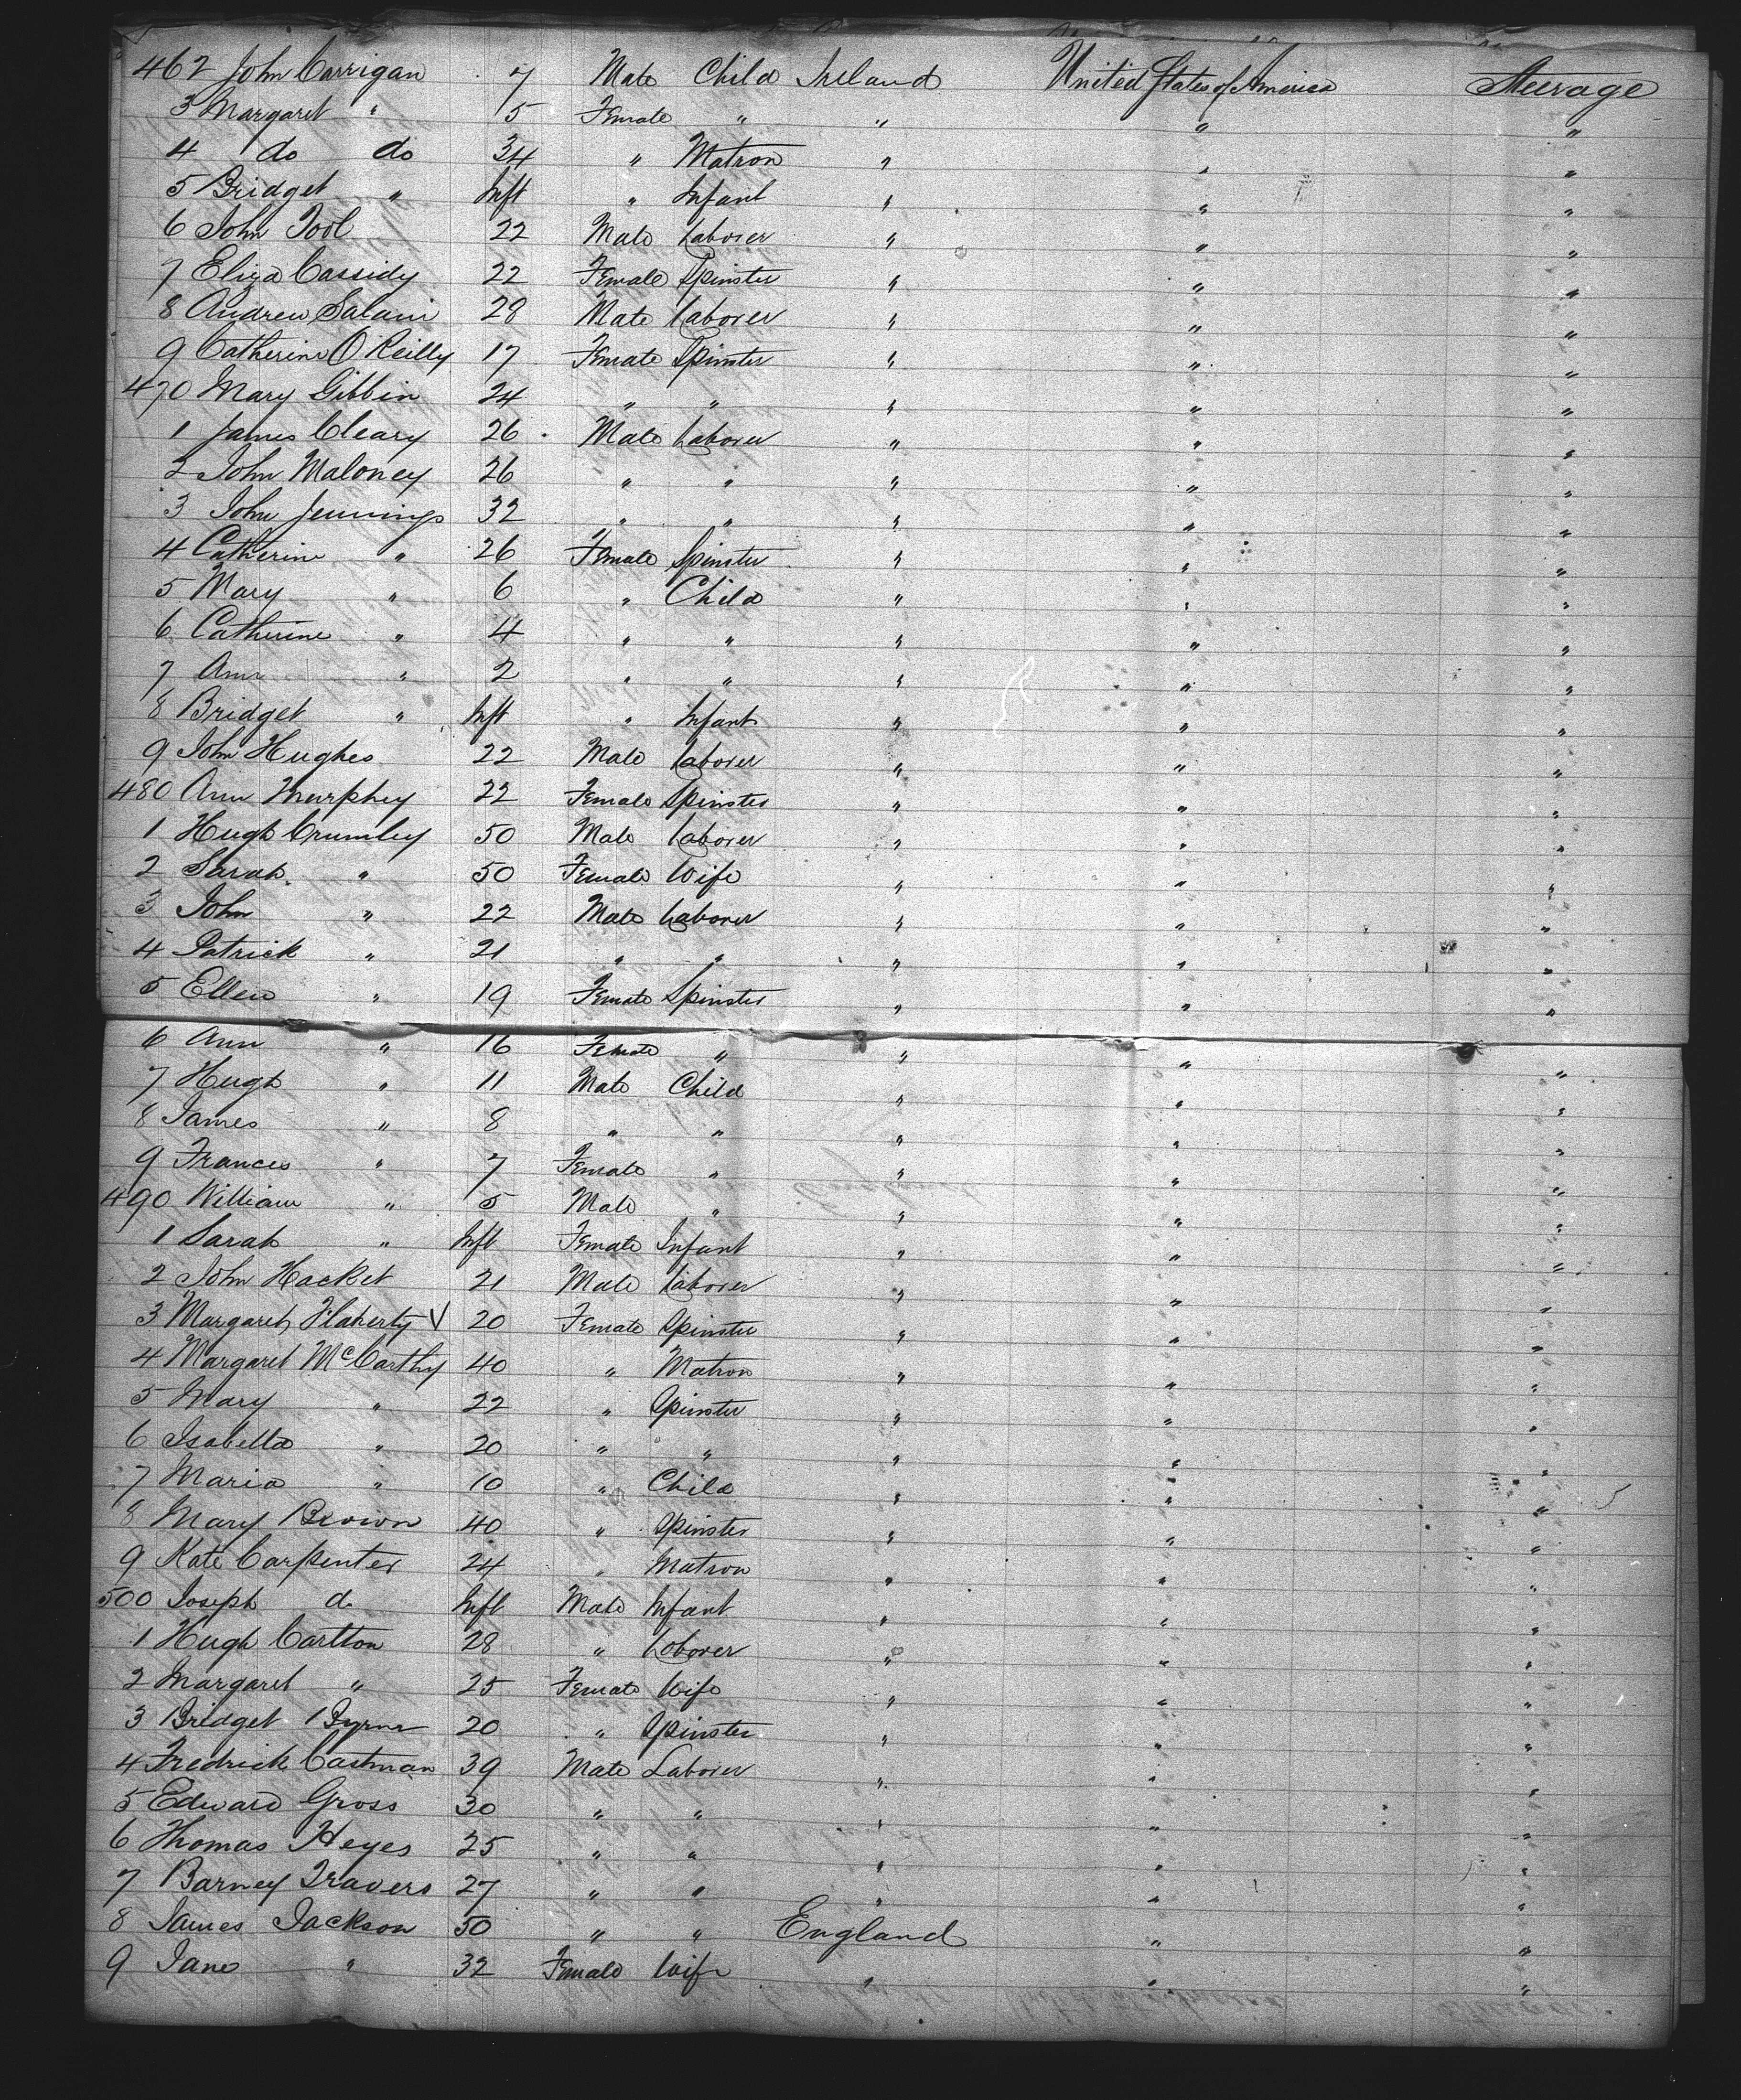 462 John Carrigan 7 Male Child Ireland United States of America Steerage
3 Margaret " 5 Female " " " "
4 do do 34 " Matron " " "
5 Bridget " Inft " Infant " " "
6 John Tool 22 Male Laborer " " "
7 Eliza Cassidy 22 Female Spinster " " "
8 Andrew 28 Male Laborer " " "
9 Catherine O'Reilly 17 Female Spinster " " "
470 Mary Gibbin 24 " " " " "
1 James Cleary 26 Male Laborer " " "
2 John Maloney 26 " " " " "
3 John Jennings 32 " " " " "
4 Catherine " 26 Female Spinster " " "
5 Mary " 6 " Child " " "
6 Catherine " 4 " " " " "
7 Ann " 2 " " " " "
8 Bridget " Inft " Infant " " "
9 John Hughes 22 Male Laborer " " "
480 Ann Murphey 22 Female Spinster " " "
1 Hugh Crumley 50 Male Laborer " " "
2 Sarah " 50 Female Wife " " "
3 John " 22 Male Laborer " " "
4 Patrick " 21 " " " " "
5 Ellen " 19 Female Spinster " " "
6 Ann " 16 Female " " " "
7 Hugh " 11 Male Child " " "
8 James " 8 " " " " "
9 Frances " 7 Female " " " "
490 William " 5 Male " " " "
1 Sarah " Inft Female Infant " " "
2 John Hacket 21 Male Laborer " " "
3 Margaret Flaherty V 20 Female Spinster " " "
4 Margaret McCarthy 40 " Matron " " "
5 Mary " 22 " Spinster " " "
6 Isabella " 20 " " " " "
7 Maria " 10 " Child " " "
8 Mary Brown 40 " Spinster " " "
9 Kate Carpenter 24 " Matron " " "
500 Joseph do Inft Male Infant " " "
1 Hugh Carlton 28 " Laborer " " "
2 Margaret " 25 Female Wife " " "
3 Bridget Byrne 20 " Spinster " " "
4 Fredrick Castman 39 Male Laborer " " "
5 Edward Gross 30 " " " " "
6 Thomas Heyes 25 " " " " "
7 Barney Travers 27 " " " " "
8 James Jackson 50 " " England " "
9 Jane " 32 Female Wife " " "